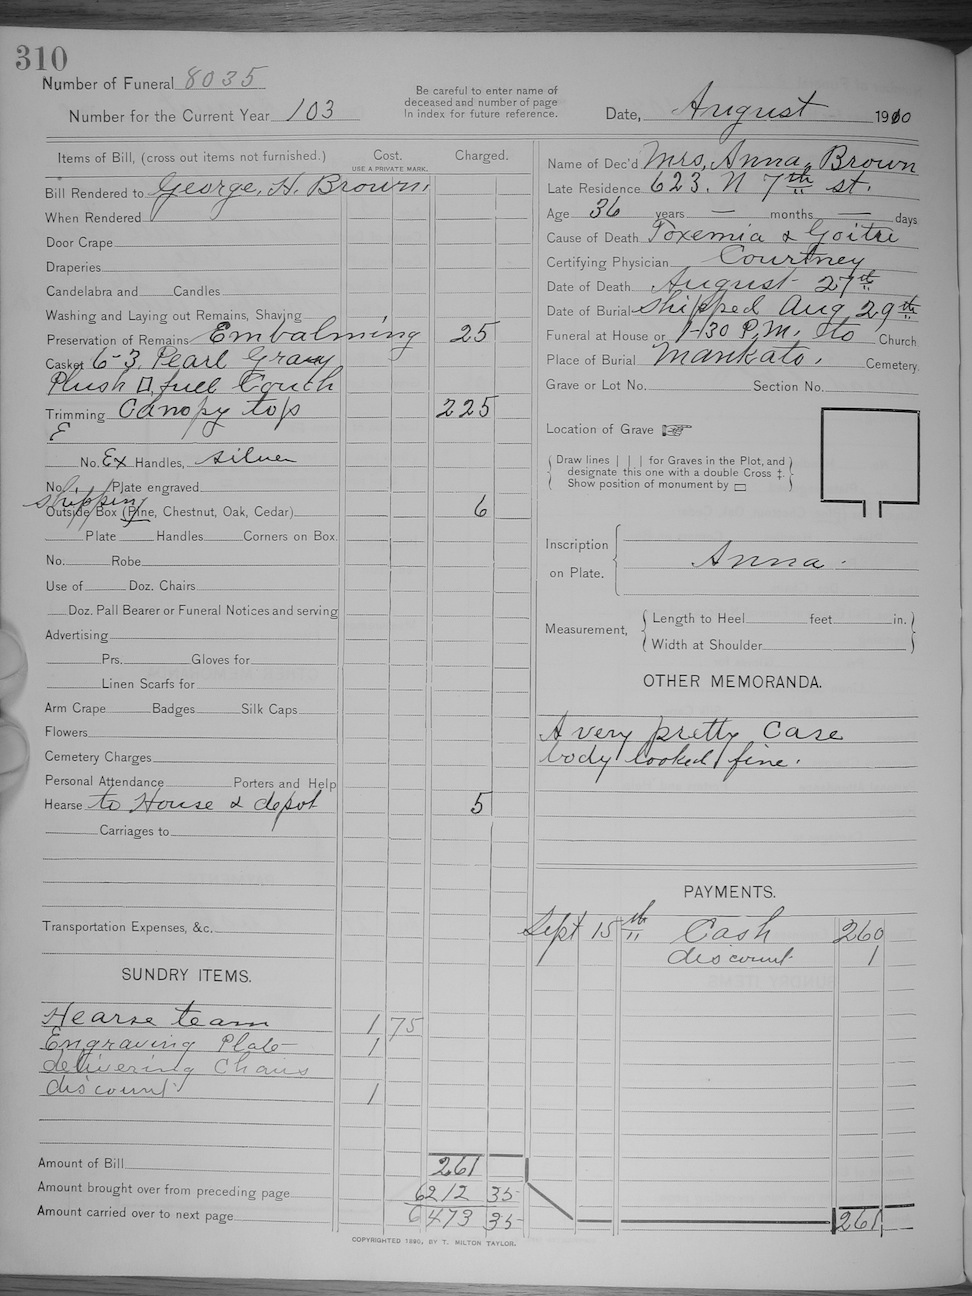 310
Number of Funeral 8035
Number for the Current Year 103
Be careful to enter name of
deceased and number of page
In index for future reference.
Date, August 1910
Items of Bill, (cross out items not furnished.) Cost. Charged.
USE A PRIVATE MARK.
Bill Rendered to George, H. Brown,
When Rendered
Door Crape
Draperies
Candelabra and Candles
Washing and Laying out Remains, Shaving
Preservation of Remains Embalming 25
Casket 6-3 Pearl Gray
Plush full Couch
Trimming Canopy top 225
E
No. Ex Handles, silver
No. Plate engraved
shipping
Outside Box (Pine, Chestnut, Oak, Cedar) 6
Plate Handles Corners on Box.
No. Robe
Use of Doz. Chairs
Doz. Pall Bearer or Funeral Notices and serving
Advertising
Prs. Gloves for
Linen Scarfs for
Arm Crape Badges Silk Caps
Flowers
Cemetery Charges
Personal Attendance Porters and Help
Hearse to House & depot 5
Carriages to
Transportation Expenses, &c.
SUNDRY ITEMS.
Hearse team 1 75
Engraving Plate 1
delivering Chairs
discount 1
Amount of Bill 261
Amount brought over from preceding page 6212 35
Amount carried over to next page 6473 35
Name of Dec'd Mrs, Anna, Brown
Late Residence 623. N 7th st.
Age 36 years — months — days
Cause of Death Toxemia & Goitre
Certifying Physician Courtney
Date of Death August 27th
Date of Burial shipped Aug 29th
Funeral at House or 1-30 P.M. to Church
Place of Burial Mankato, Cemetery.
Grave or Lot No. Section No.
Location of Grave ☞
Draw lines | | | for Graves in the Plot, and
designate this one with a double Cross ‡.
Show position of monument by ▭
Inscription
on Plate.
Anna.
Measurement,
Length to Heel feet in.
Width at Shoulder
OTHER MEMORANDA.
A very pretty Case
body looked fine.
PAYMENTS.
Sept 15th Cash 260
discount 1
261
COPYRIGHTED 1890, BY T. MILTON TAYLOR.